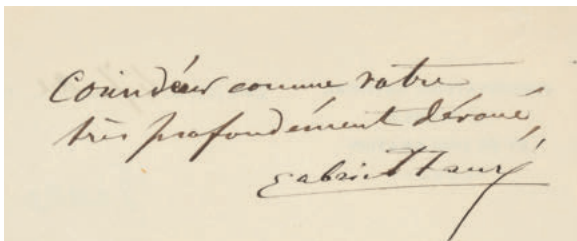 comme votre
très profondément dévoué
Gabriel Fauré